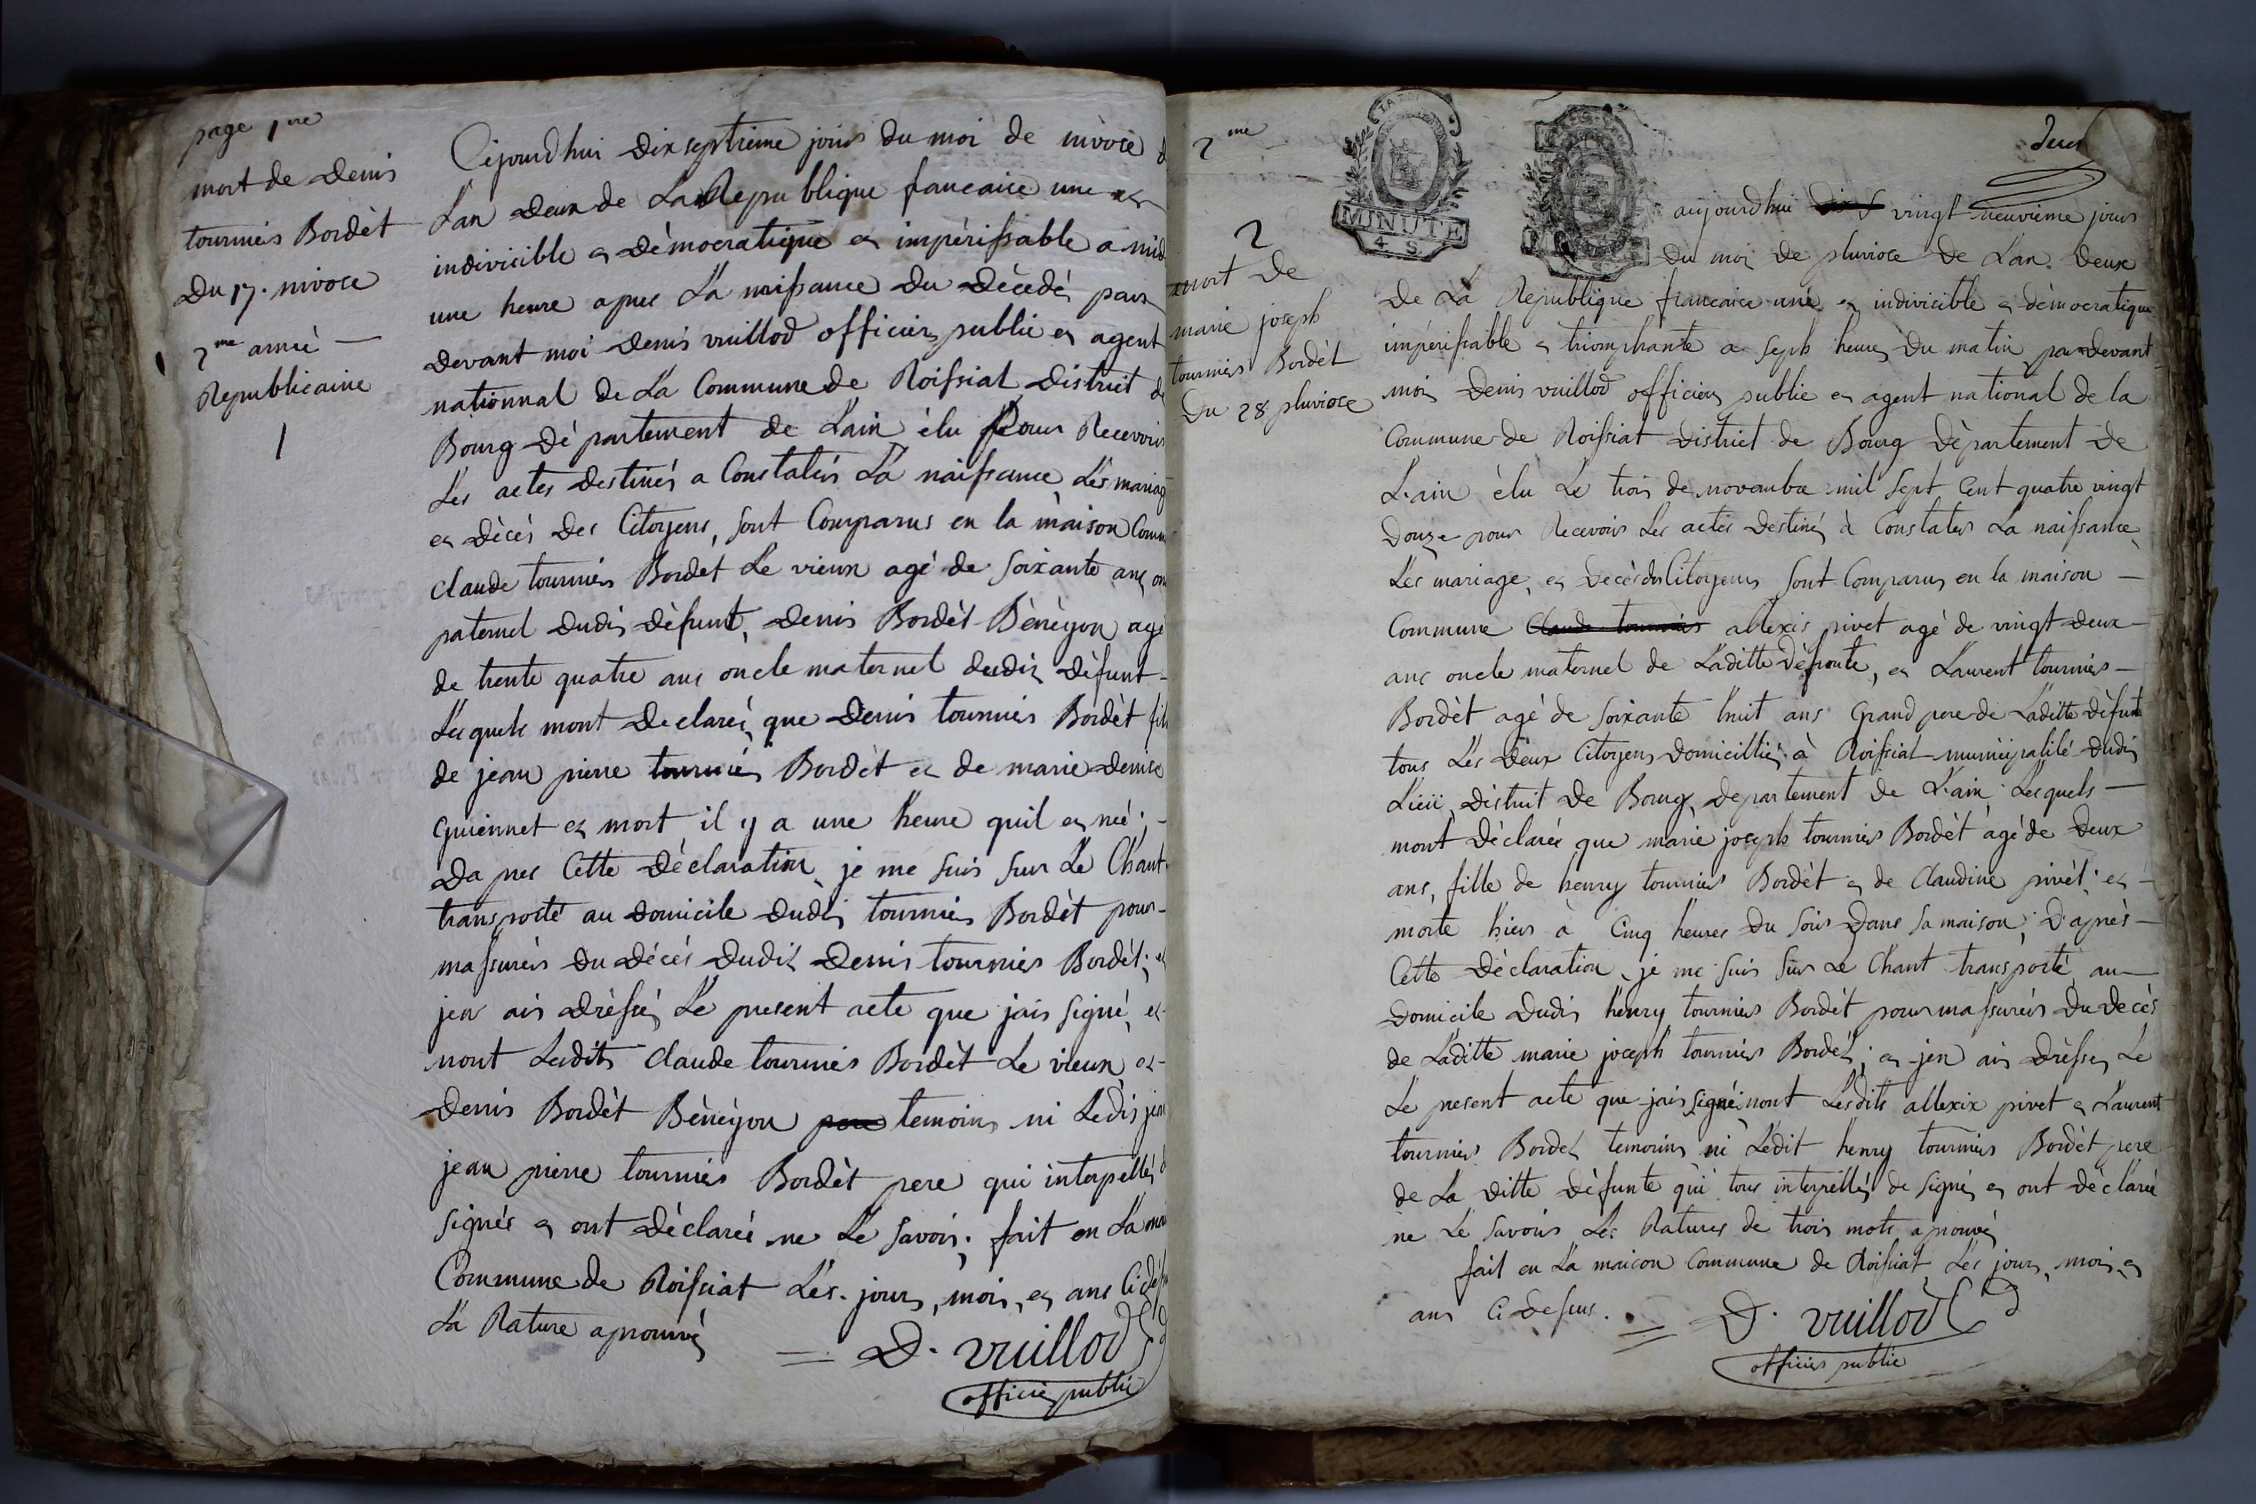 page 1re
mort de Denis
tournier Bordèt
Du 17. nivose
2me anneé —
Republicaine
1
Cejourdhui dix septieme jours du moi de nivose
L'an deux de La Republique francaise une et
indivicible et démocratique et impérissable a
une heure apres La naissance du décédé par
devant moi denis vuillod officier public et agent
nationnal de La Commune de Roissiat District de
Bourg département de L'ain élu pour Recevoir
Les actes destinés a Constatér La naissance, Lés mariag
et décès des Citoyens, sont Comparus en la maison Comm
Claude tournier Bordèt Le vieux agé de soixante ans
paternel dudit défunt, denis Bordèt Bènèyon agé
de trente quatre ans oncle maternel dudit défunt —
Lesquels mont declareé que Denis tournier Bordèt fils
de jean pierre tournier Bordèt et de marie denise
Guiennet et mort il y a une heure quil et né; —
Da pres Cette déclaration je me suis sur Le Chant
transporté au domicile dudit tournier Bordèt pour —
massurér du décés dudit Denis tournier Bordèt; et
jen ais dréssé Le present acte que jais signé, et —
nont Lesdits Claude tournier Bordèt Le vieux et —
Denis Bordèt Bènèyon pere temoins ni Ledit jean
jean pierre tournier Bordèt pere qui interpéllés
signér et ont déclareé ne Le savoir; fait en La
Commune de Roissiat Lés. jours, mois, et ans
La Rature aprouvé
= D. vuillod
officier public
2me
deux
2
mort de
marie joseph
tournier Bordèt
Du 28 pluviose
MINUTE
4 S.
aujourdhui vingt neuvieme jours
du moi de pluviose de L'an. deux
de La Republique francaise une et indivicible et démocratique
impérissable et triomphante a sept heures du matin pardevant
moi Denis vuillod officier public et agent national de la
Commune de Roissiat District de Bourg département de
L'ain élu Le trois de novembre mil sept Cent quatre vingt
douze pour Recevoir Les actes destiné à Constater La naissance,
Les mariage, et décès des Citoyens sont Comparus en la maison —
Commune Claude tournier allexis pivet agé de vingt deux —
ans oncle maternel de Laditte défunte, et Laurent tournier —
Bordèt agé de soixante huit ans Grand pere de Laditte défunte
tous Lés deux Citoyens domicilliés à Roissiat municipalité dudit
Lieü, district de Bourg departement de L'ain Lesquels —
mont déclareé que marie joseph tournier Bordèt agé de deux
ans, fille de henry tournier Bordèt et de Claudine pivèt; et —
morte hier à Cinq heures du soir dans sa maison; D'après —
Cette déclaration, je me suis sur Le Chant transporté au —
domicile dudit henry tournier Bordèt pour massurér du decès
de Laditte marie joseph tournier Bordèt; et jen ais dréssé Le
Le present acte que jais signé, nont Lesdits allexix pivet et Laurent
tournier Bordet temoins ni Ledit henry tournier Bordèt pere
de La ditte défunte qui tous interpéllés de signé et ont déclareé
ne Le savoir Les Ratures de trois mots aprouvé
fait en La maison Commune de Roissiat Les jours, mois, et
ans Ci dessus.
= D. vuillod
officier public